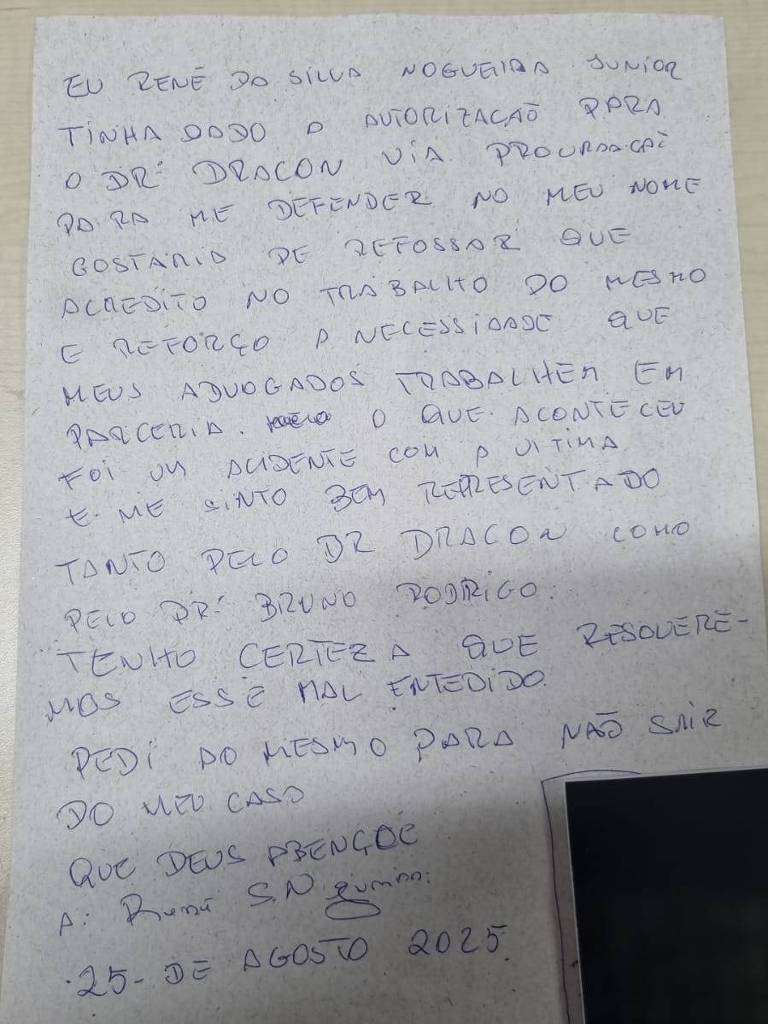 EU RENÊ DA SILVA NOGUEIRA JUNIOR
TINHA DADO A AUTORIZAÇÃO PARA
O DR: DRACON VIA PROCURAÇÃO
PARA ME DEFENDER NO MEU NOME
GOSTARIA DE REFOSSAR QUE
ACREDITO NO TRABALHO DO MESMO
E REFORÇO A NECESSIDADE QUE
MEUS ADVOGADOS TRABALHEM EM
PARCERIA. O QUE ACONTECEU
FOI UM ACIDENTE COM A VITIMA
E ME SINTO BEM REPRESENTADO
TANTO PELO DR DRACON COMO
PELO DR: BRUNO RODRIGO.
TENHO CERTEZA QUE RESOLVERE-
MOS ESSE MAL ENTEDIDO.
PEDI AO MESMO PARA NÃO SAIR
DO MEU CASO
QUE DEUS ABENÇOE
A: Renê S.N Junior.
25- DE AGOSTO 2025.